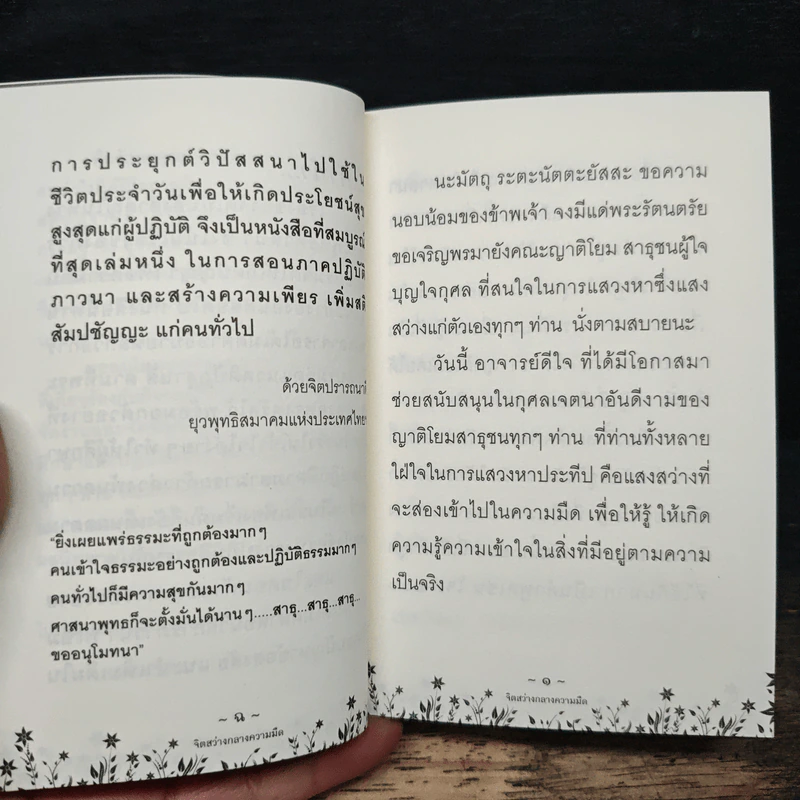 การประยุกต์วิปัสสนาไปใช้ใน
ชีวิตประจำวันเพื่อให้เกิดประโยชน์สุข
สูงสุดแก่ผู้ปฏิบัติ จึงเป็นหนังสือที่สมบูรณ์
ที่สุดเล่มหนึ่ง ในการสอนภาคปฏิบัติ
ภาวนา และสร้างความเพียร เพิ่มสติ
สัมปชัญญะ แก่คนทั่วไป
ด้วยจิตปรารถนาดี
ยุวพุทธิสมาคมแห่งประเทศไทยฯ
"ยิ่งเผยแพร่ธรรมะที่ถูกต้องมากๆ
คนเข้าใจธรรมะอย่างถูกต้องและปฏิบัติธรรมมากๆ
คนทั่วไปก็มีความสุขกันมากๆ
ศาสนาพุทธก็จะตั้งมั่นได้นานๆ.....สาธุ...สาธุ...สาธุ...
ขออนุโมทนา"
~ ฉ ~
จิตสว่างกลางความมืด
นะมัตถุ ระตะนัตตะยัสสะ ขอความ
นอบน้อมของข้าพเจ้า จงมีแด่พระรัตนตรัย
ขอเจริญพรมายังคณะญาติโยม สาธุชนผู้ใจ
บุญใจกุศล ที่สนใจในการแสวงหาซึ่งแสง
สว่างแก่ตัวเองทุกๆ ท่าน นั่งตามสบายนะ
วันนี้ อาจารย์ดีใจ ที่ได้มีโอกาสมา
ช่วยสนับสนุนในกุศลเจตนาอันดีงามของ
ญาติโยมสาธุชนทุกๆ ท่าน ที่ท่านทั้งหลาย
ใฝ่ใจในการแสวงหาประทีป คือแสงสว่างที่
จะส่องเข้าไปในความมืด เพื่อให้รู้ ให้เกิด
ความรู้ความเข้าใจในสิ่งที่มีอยู่ตามความ
เป็นจริง
~ ๑ ~
จิตสว่างกลางความมืด